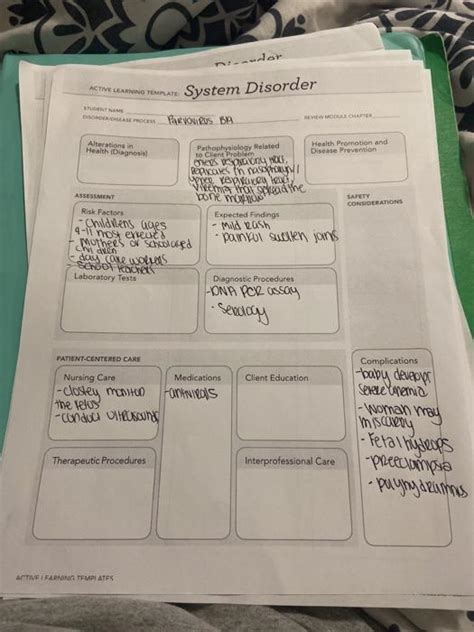 Disorder
ACTIVE LEARNING TEMPLATE: System Disorder
STUDENT NAME
DISORDER/DISEASE PROCESS Parvovirus B19
REVIEW MODULE CHAPTER
Alterations in
Health (Diagnosis)
Pathophysiology Related
to Client Problem
enters respiratory tract,
replicates in nasopharynx/
upper respiratory tract,
that spread the
bone marrow
Health Promotion and
Disease Prevention
ASSESSMENT
SAFETY
CONSIDERATIONS
Risk Factors
- childrens ages
4-11 most
- Mothers of school aged
children
- day care workers
school teachers
Expected Findings
- Mild rash
- painful swollen joints
Laboratory Tests
Diagnostic Procedures
-DNA PCR assay
- Serology
PATIENT-CENTERED CARE
Complications
-baby develop
severe anemia
- Woman may
miscarry
- Fetal hydrops
- preeclampsia
- polyhydramnios
Nursing Care
- closley monitor
the fetus
- conduct ultrasound
Medications
-antivirals
Client Education
Therapeutic Procedures
Interprofessional Care
ACTIVE LEARNING TEMPLATES